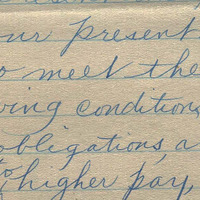 our present
to meet the
ving conditions
obligations, a
to higher pay,